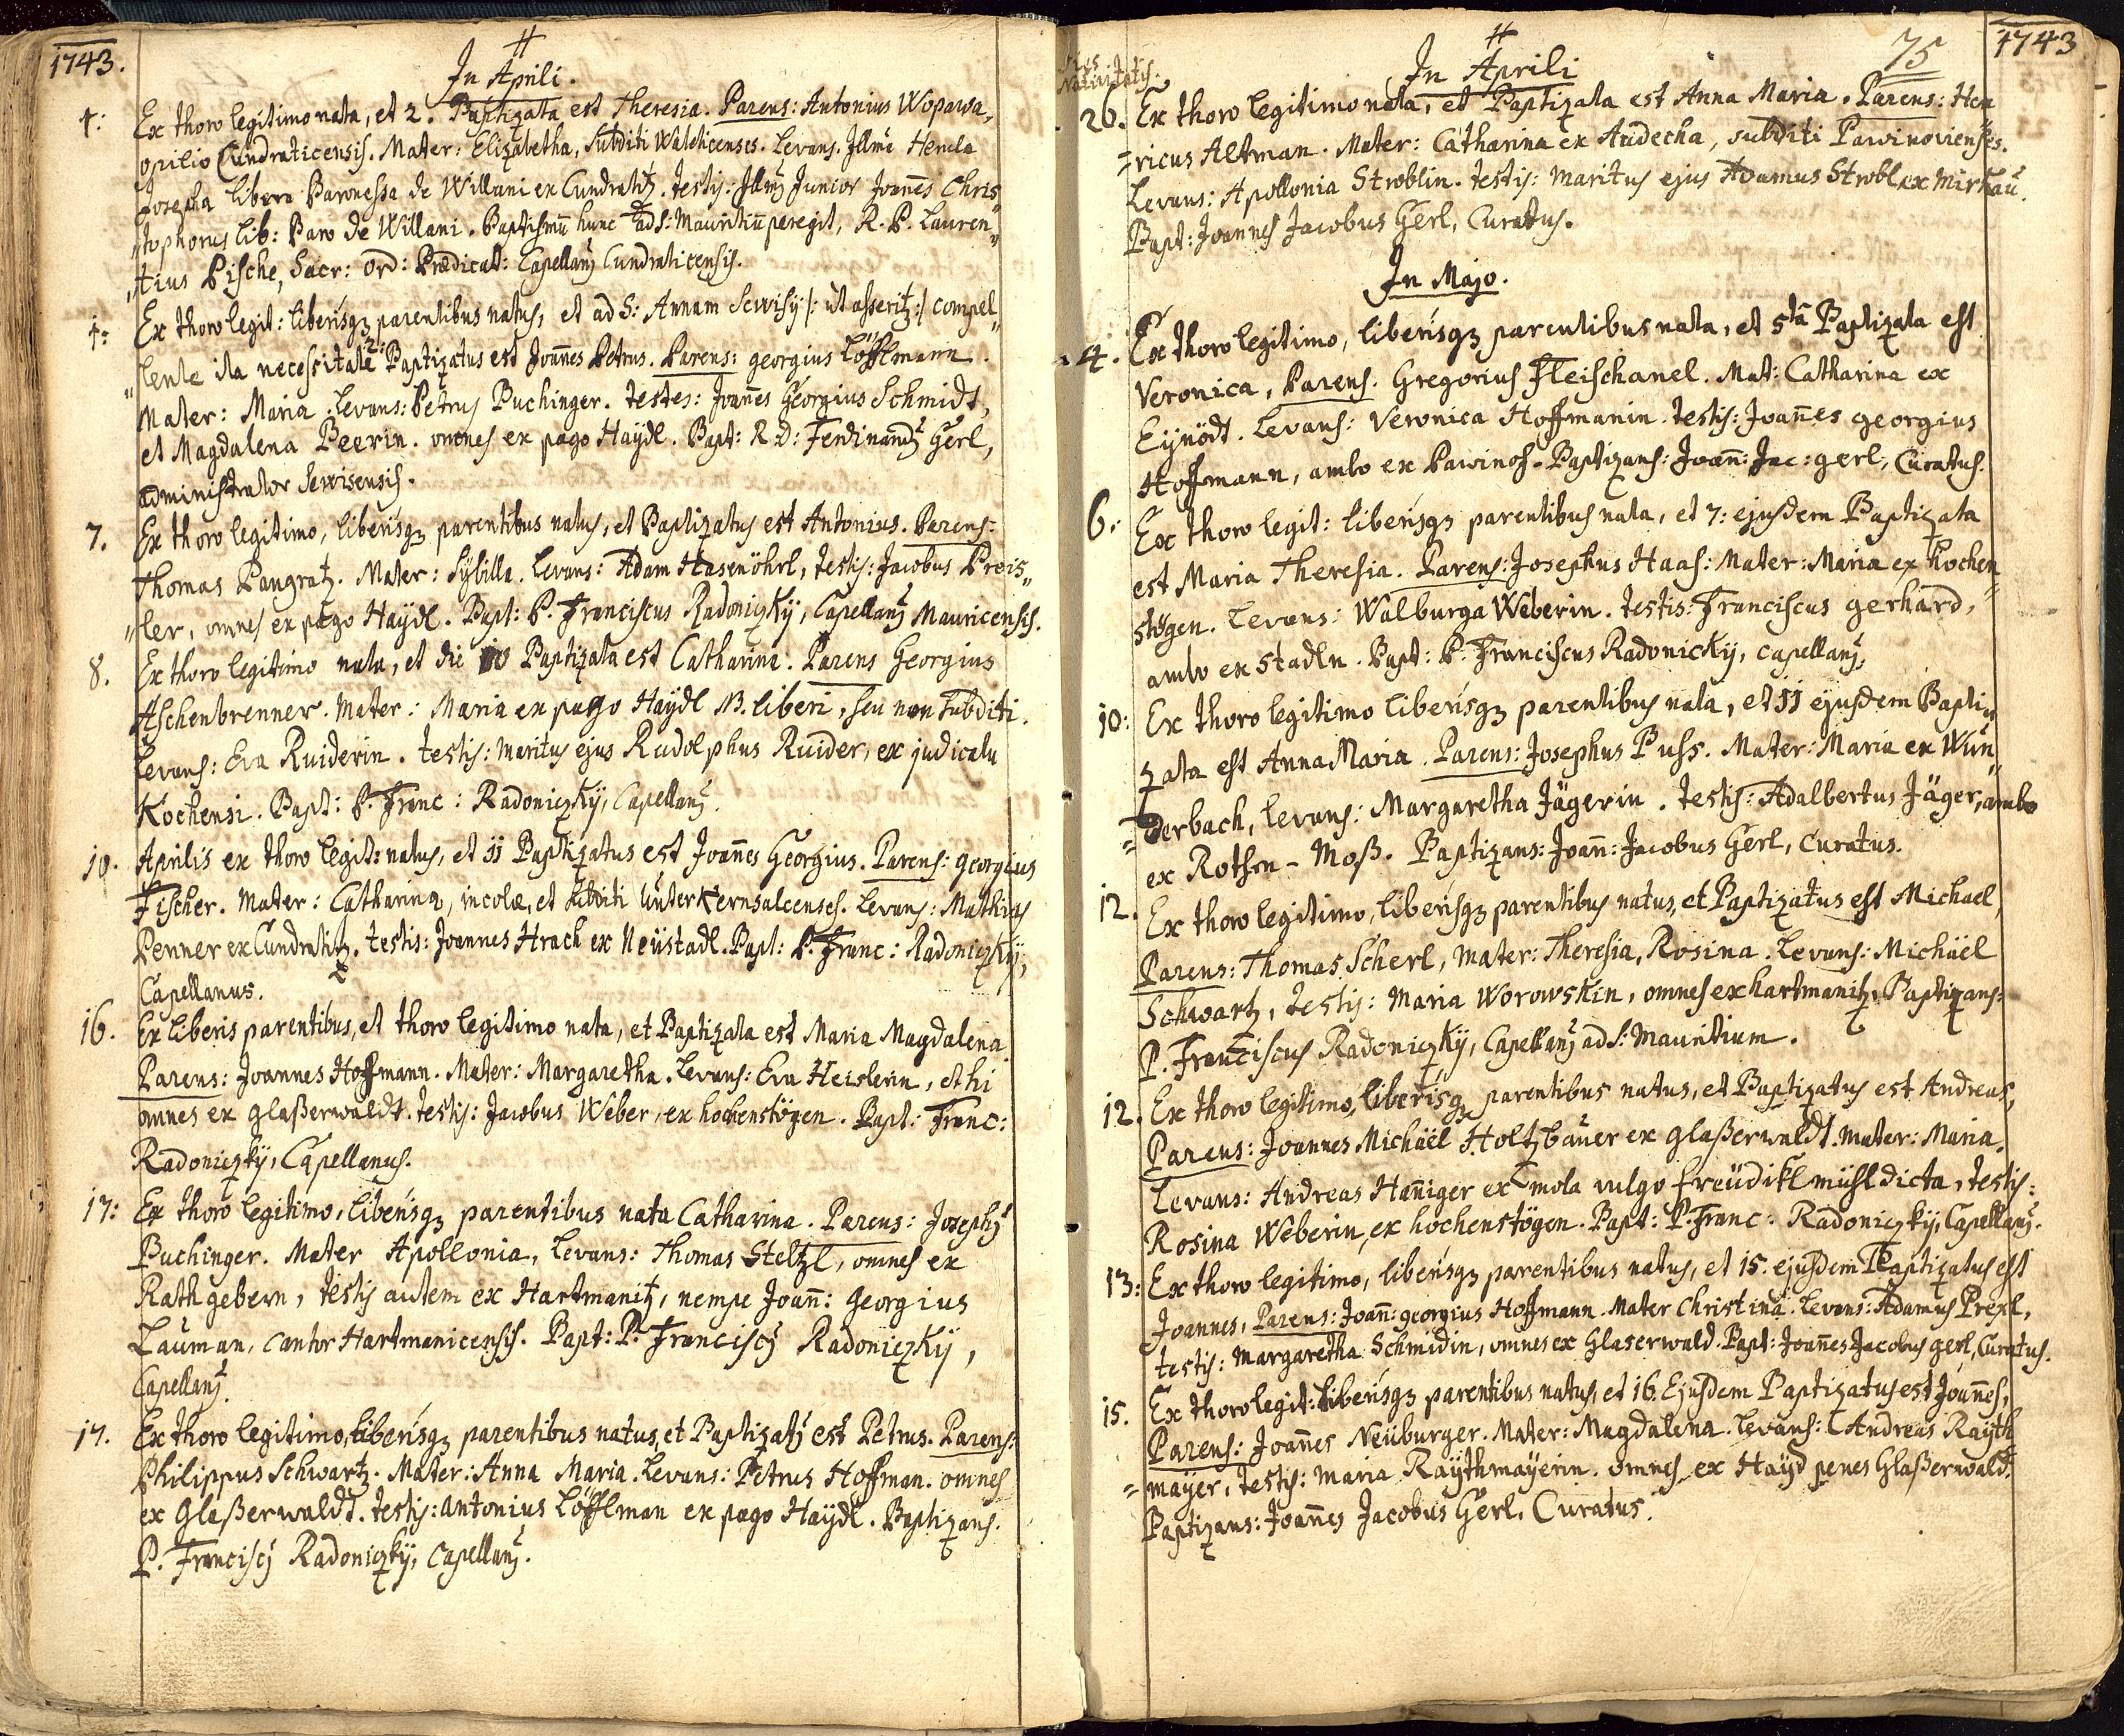 1743.
#
In Aprili.
1: Ex thoro legitimo nata, et 2. Baptizata est Theresia. Parens: Antonius Wopawa,
opilio Cundraticensis. Mater: Elizabetha, subditi Walchicenses. Levans. Illma
Josepha libera Baronessa de Willani ex Cundratitz. testis: Illmq Junior Joañes Chris"
"tophorus lib: Baro de Willani. Baptismũ hunc ad S: Mauritiũ peregit, R. P. Lauren"
"tius Pische, Sacr: Ord: Prædicat: Capellanq Cundraticensis.
1: Ex thoro legit: liberisqz parentibus natus, et ad S: Annam Sewisÿ /: ut asseritz :/ compel"
"lente ita necessitate 2: Baptizatus est Joañes Petrus. Parens: georgius Löfflmann.
Mater: Maria. Levans: Petrus Puchinger. testes: Joañes Georgius Schmidt,
et Magdalena Beerin. omnes ex pago Haÿdl. Bapt: R. D: Ferdinandq Gerl,
administrator Sewisensis.
7. Ex thoro legitimo, liberisqz parentibus natus, et Baptizatus est Antonius. Parens:
Thomas Pangratz. Mater: Sÿbilla. Levans: Adam Hasenöhrl, testis: Jacobus Preis"
"ler, omnes ex pago Haÿdl. Bapt: P. Franciscus Radoniczkÿ, Capellanq Mauricensis.
8. Ex thoro legitimo nata, et die 10 Baptizata est Catharina. Parens Georgius
Aschenbrenner. Mater: Maria ex pago Haÿdl NB. liberi, seu non subditi.
Levans: Eva Ruiderin. testis: maritus ejus Rudolphus Ruider, ex judicatu
Kochensi. Bapt: P. Franc: Radoniczkÿ, Capellanq.
10. Aprilis ex thoro legit: natus, et 11 Baptizatus est Joañes Georgius. Parens: georgius
Fischer. Mater: Catharina, incolæ, et subditi UnterKernsalcenses. Levans: Mathias
Penner ex Cundratitz. testis: Joannes Hrach ex Neüstadl. Bapt: P. Franc: Radoniczkÿ,
Capellanus.
16. Ex liberis parentibus, et thoro legitimo nata, et Baptizata est Maria Magdalena
Parens: Joannes Hoffmann. Mater: Margaretha. Levans: Eva Heislerin, et hi
omnes ex glaßerwaldt. testis: Jacobus Weber, ex hochenstögen. Bapt: Franc:
Radoniczkÿ, Capellanus.
17: Ex thoro legitimo, liberisqz parentibus nata Catharina. Parens: Josephq
Puchinger. Mater Apollonia, Levans: Thomas Steltzl, omnes ex
Rathgebern, testis autem ex Hartmanitz, nempe Joañ: georgius
Lauman, cantor Hartmanicensis. Bapt: P. Franciscq Radoniczkÿ,
Capellanq.
17. Ex thoro legitimo, liberisqz parentibus natus, et Baptizatq est Petrus. Parens:
Philippus Schwartz. Mater: Anna Maria. Levans: Petrus Hoffman. omnes
ex Glaßerwaldt. testis: antonius Löfflman ex pago Haÿdl. Baptizans.
P. Franciscq Radoniczkÿ, Capellanq.
1743
75
Dies
Nativitatis.
#
In Aprili
26. Ex thoro legitimo nata, et Baptizata est Anna Maria. Parens: Hen
=ricus Altman. Mater: Catharina ex Audecha, subditi Pawinovienses.
Levans: Apollonia Stroblin. testis: maritus ejus Adamus Strobl ex Mirkau.
Bapt: Joannes Jacobus Gerl, Curatus.
In Majo.
4. Ex thoro legitimo, liberisqz parentibus nata, et 5ta Baptizata est
Veronica, Parens. Gregorius Fleischanel. Mat: Catharina ex
Eÿnödt. Levans: Veronica Hoffmanin. testis: Joañes georgius
Hoffmann, ambo ex Pawinof. Baptizans: Joañ: Jac: gerl, Curatus.
6. Ex thoro legit: liberisqz parentibus nata, et 7: ejusdem Baptizata
est Maria Theresia. Parens: Josephus Haas: Mater: Maria ex hochen
"stögen. Levans: Walburga Weberin. testis: Franciscus gerhard,
ambo ex Stadln. Bapt: P. Franciscus Radonickÿ, capellanq.
10: Ex thoro legitimo liberisqz parentibus nata, et 11 ejusdem Bapti"
zata est Anna Maria. Parens: Josephus Puss. Mater: Maria ex Wun"
=derbach, levans: Margaretha Jägerin. testis: Adalbertus Jäger, ambo
ex Rothen-Moß. Baptizans: Joañ: Jacobus Gerl, Curatus.
12. Ex thoro legitimo, liberisqz parentibus natus, et Baptizatus est Michael,
Parens: Thomas Scherl, mater: Theresia, Rosina. Levans: Michäel
Schwartz, testis: Maria Worowskin, omnes ex hartmanitz. Baptizans:
P. Franciscus Radoniczkÿ, Capellanq ad S: Mauritium.
12. Ex thoro legitimo, liberisqz parentibus natus, et Baptizatus est Andreas,
Parens: Joannes Michäel Holtzbauer ex glaßerwaldt. mater: Maria.
Levans: Andreas Hañiger ex mola vulgo freüdikl mühl dicta, testis:
Rosina Weberin, ex hochenstögen. Bapt: P. Franc: Radoniczkÿ, Capellanq.
13: Ex thoro legitimo, liberisqz parentibus natus, et 15. ejusdem Baptizatus est
Joannes, Parens: Joañ: georgius Hoffmann. Mater Christina. Levans: Adamus Prexl,
testis: Margaretha Schmidin, omnes ex Glaserwald. Bapt: Joañes Jacobus gerl, Curatus.
15. Ex thoro legit: liberisqz parentibus natus, et 16. Ejusdem Baptizatus est Joañes,
Parens: Joañes Neüburger. Mater: Magdalena. Levans: Andreas Raÿth
=maÿer, testis: Maria Raÿthmaÿerin. omnes ex Haÿd penes Glaßerwald.
Baptizans: Joañes Jacobus Gerl, Curatus.